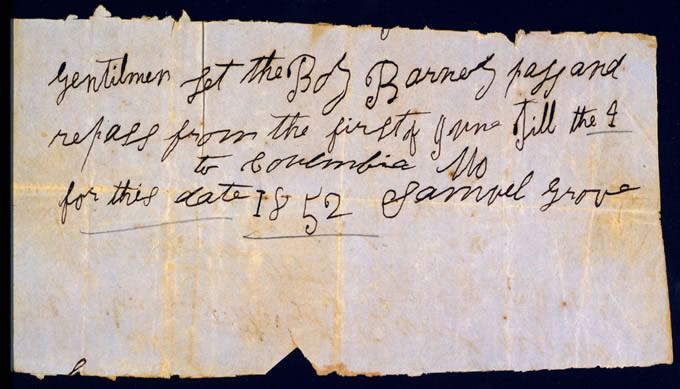 Gentilmen let the Boy Barney pass and
repass from the first of June till the 4
to Columbia Mo
for this date 1852 Samuel Grove